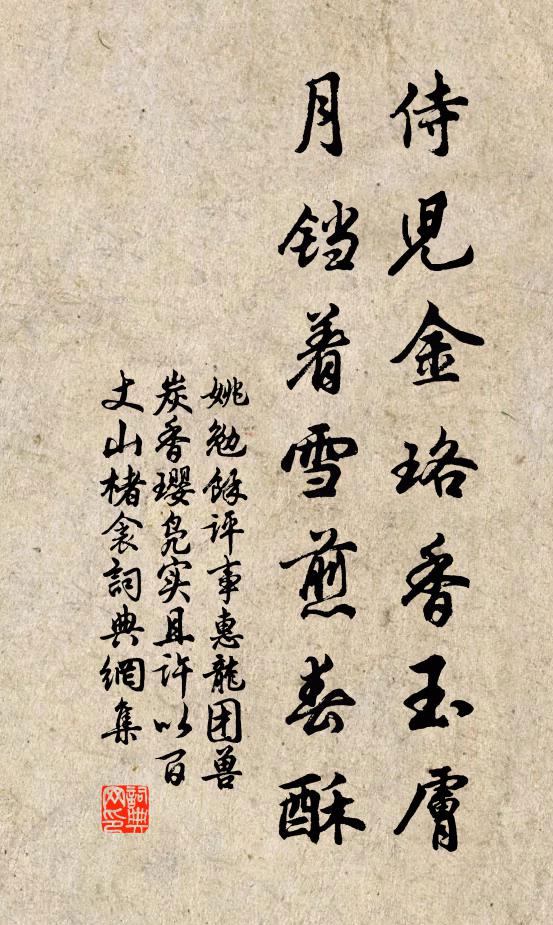 侍児金珞香玉膚
月铛着雪煎春酥
姚勉餘评事惠龍团兽
炭香璎凫实且许以百
丈山楮衾詞典網集
詞典网印